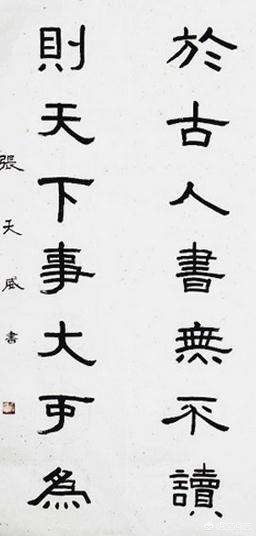 於古人書無不讀
則天下事大可為
張天威書